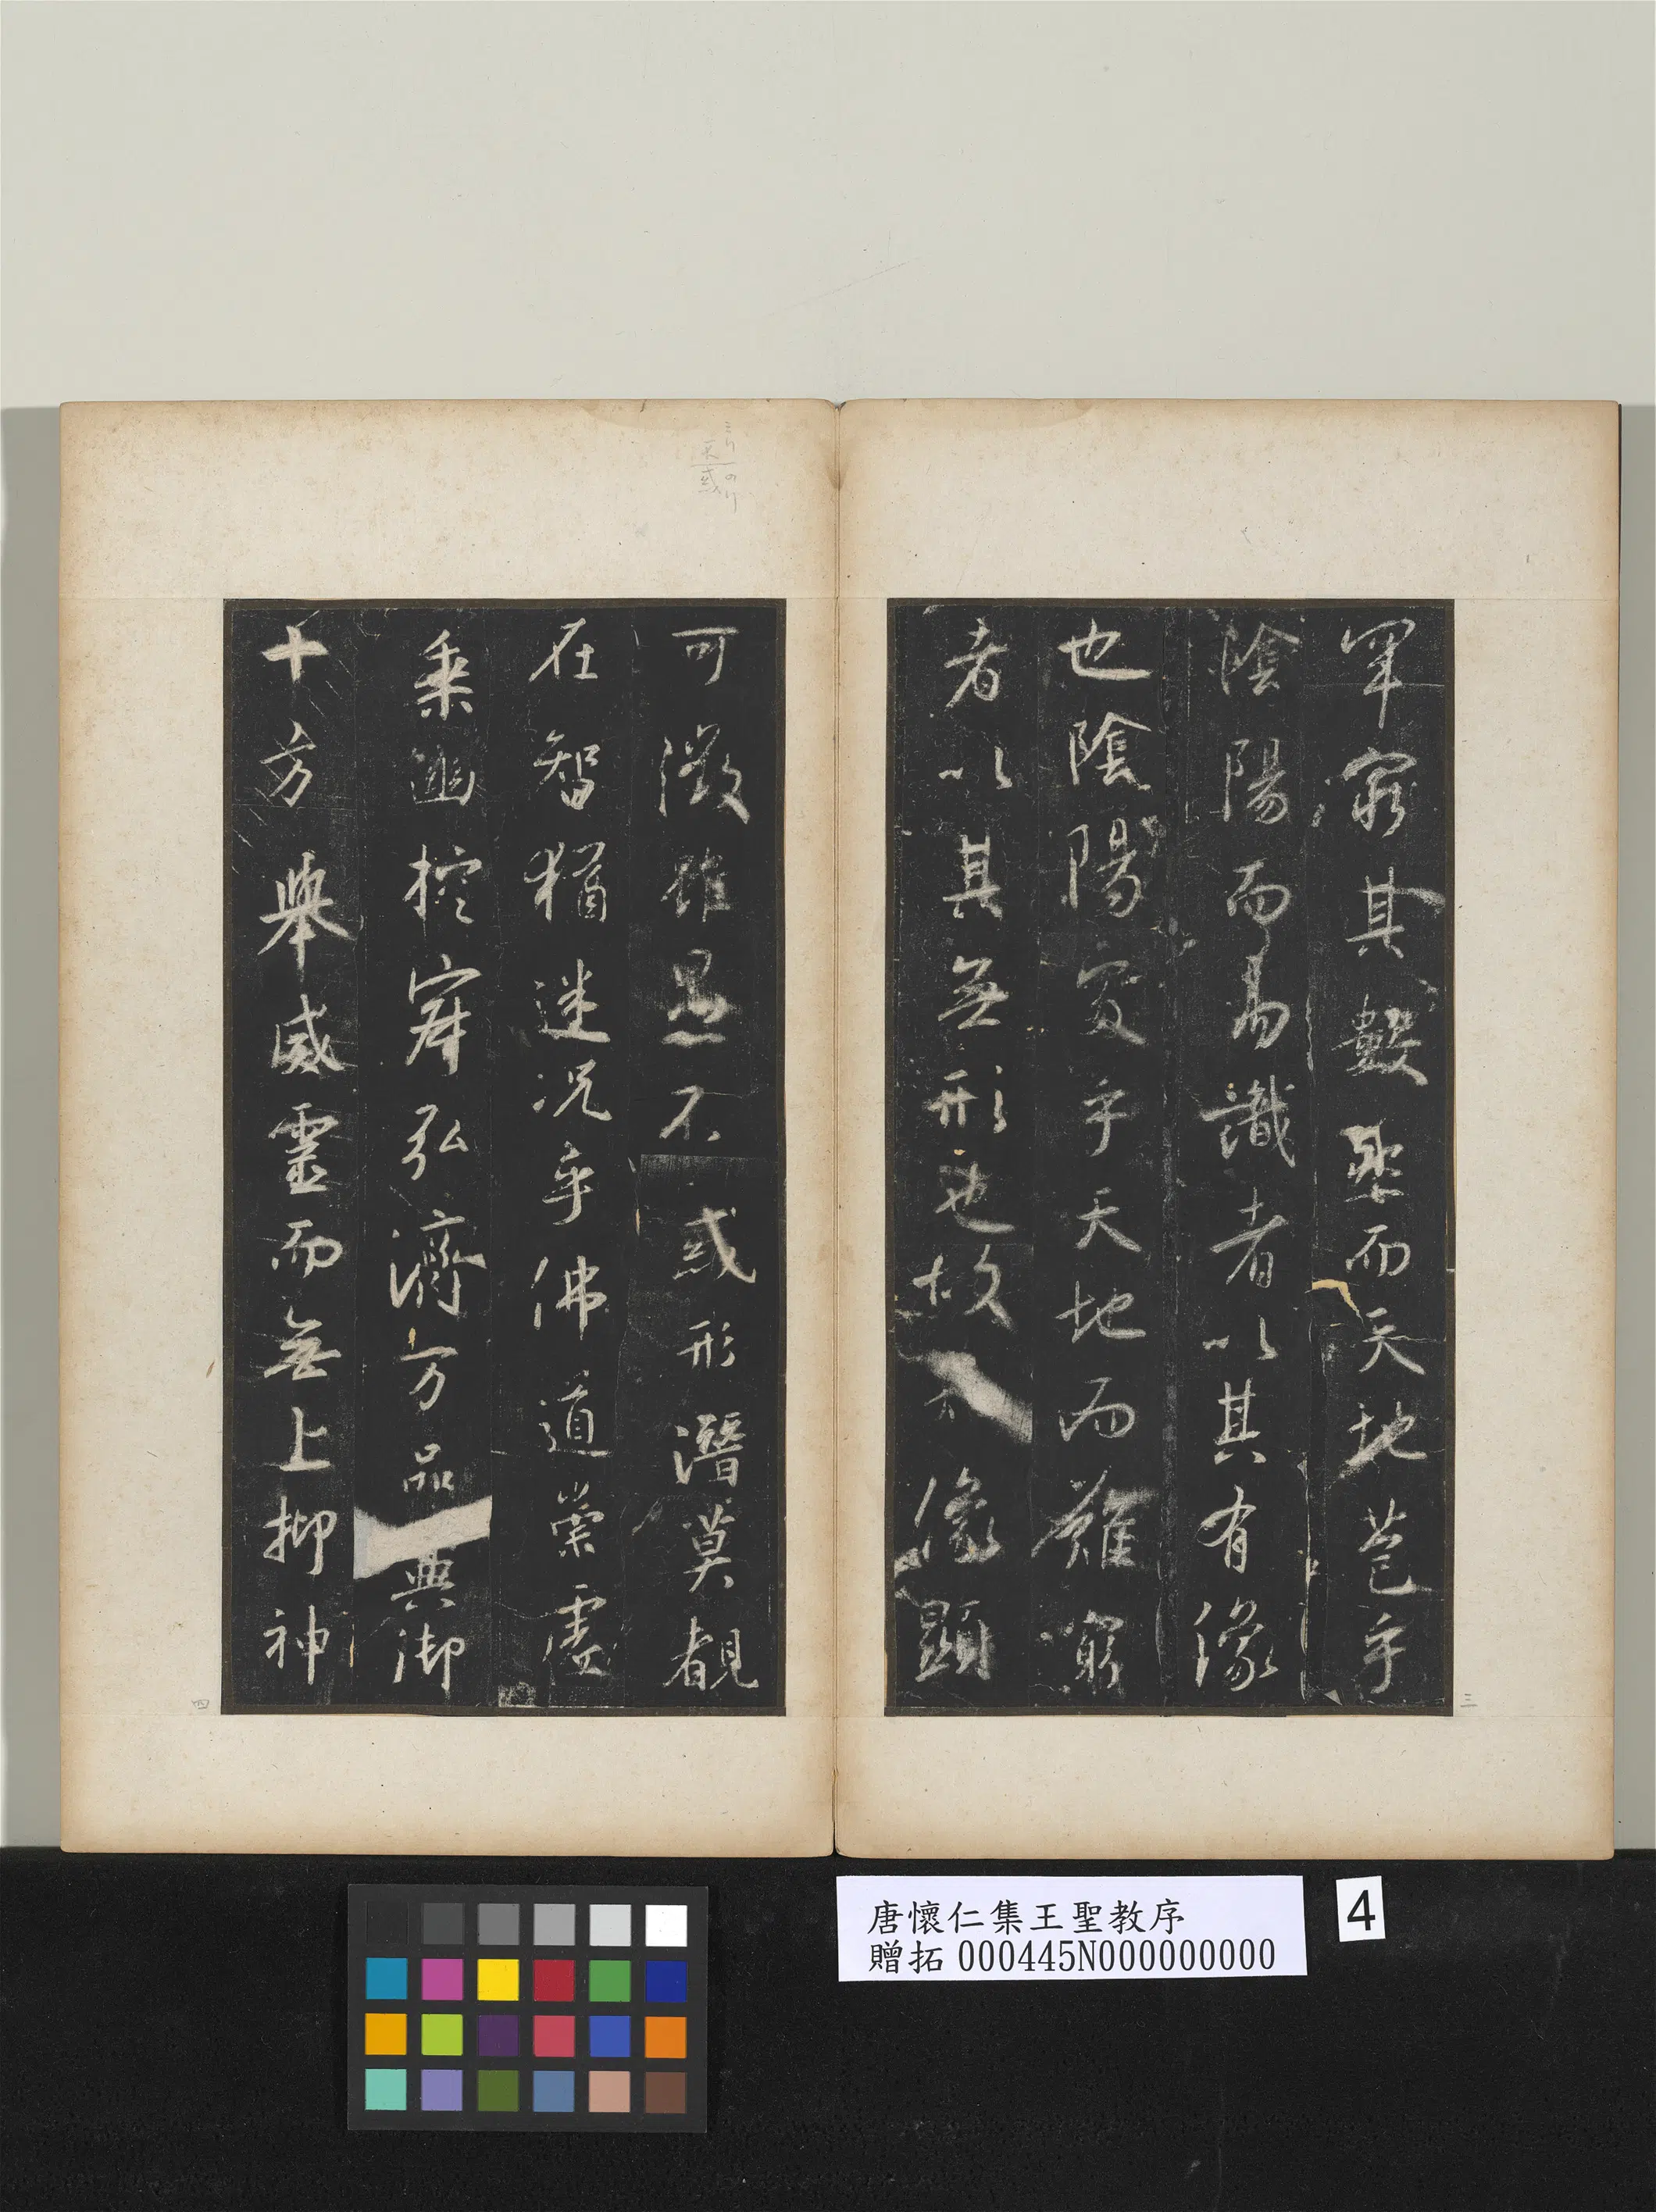 罕窮其數然而天地苞乎
陰陽而易識者以其有像
也陰陽處乎天地而難窮
者以其無形也故
像顯
可徵雖愚不惑形潛莫覩
在智猶迷況乎佛道崇虛
乘幽控寂弘濟万品典御
十方舉威靈而無上抑神
三
四
唐懷仁集王聖教序
贈拓 000445N000000000
4